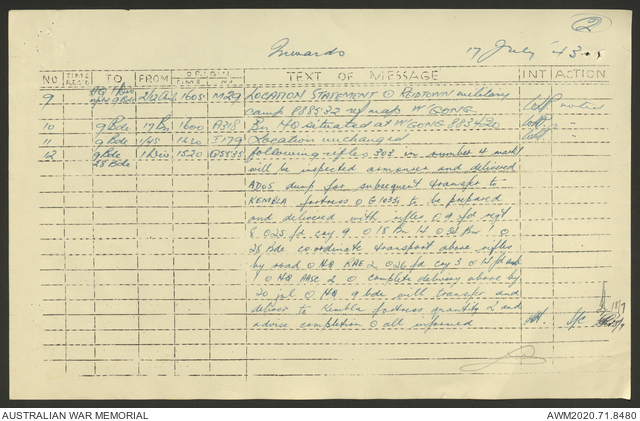 2
Inwards 17 July 43
NO TIME REC'D TO FROM ORIGIN TIME NO. TEXT OF MESSAGE INT ACTION
9 HQ 1 Div 9 Bde 1605 M29 LOCATION STATEMENT O military
camp 888532 map W'GONG noted
10 9 Bde 17 Bn 1600 A318 Bn HQ situated at W'GONG 883420
11 9 Bde 1/45 1620 I 179 Location unchanged
12 9 Bde 1 Div 1520 following rifles 303 in number 4 mark 1
28 Bde will be inspected armourer and delivered
ADOS dump for subsequent transfer to
KEMBLA fortress O G1033s to be prepared
and delivered with rifles O 9 fd regt
8 O 25 fd coy 9 O 18 Bn 14 O 34 Bn 1 O
28 Bde coordinate transport above rifles
by road O HQ RAE 2 O 26 fd coy 3 O 14 fd amb
1 O HQ AASC 2 O complete delivery above by
20 jul O HQ 9 bde will transfer and
deliver to Kembla fortress quantity 2 and
advise completion O all informed
18/7
AUSTRALIAN WAR MEMORIAL AWM2020.71.8480